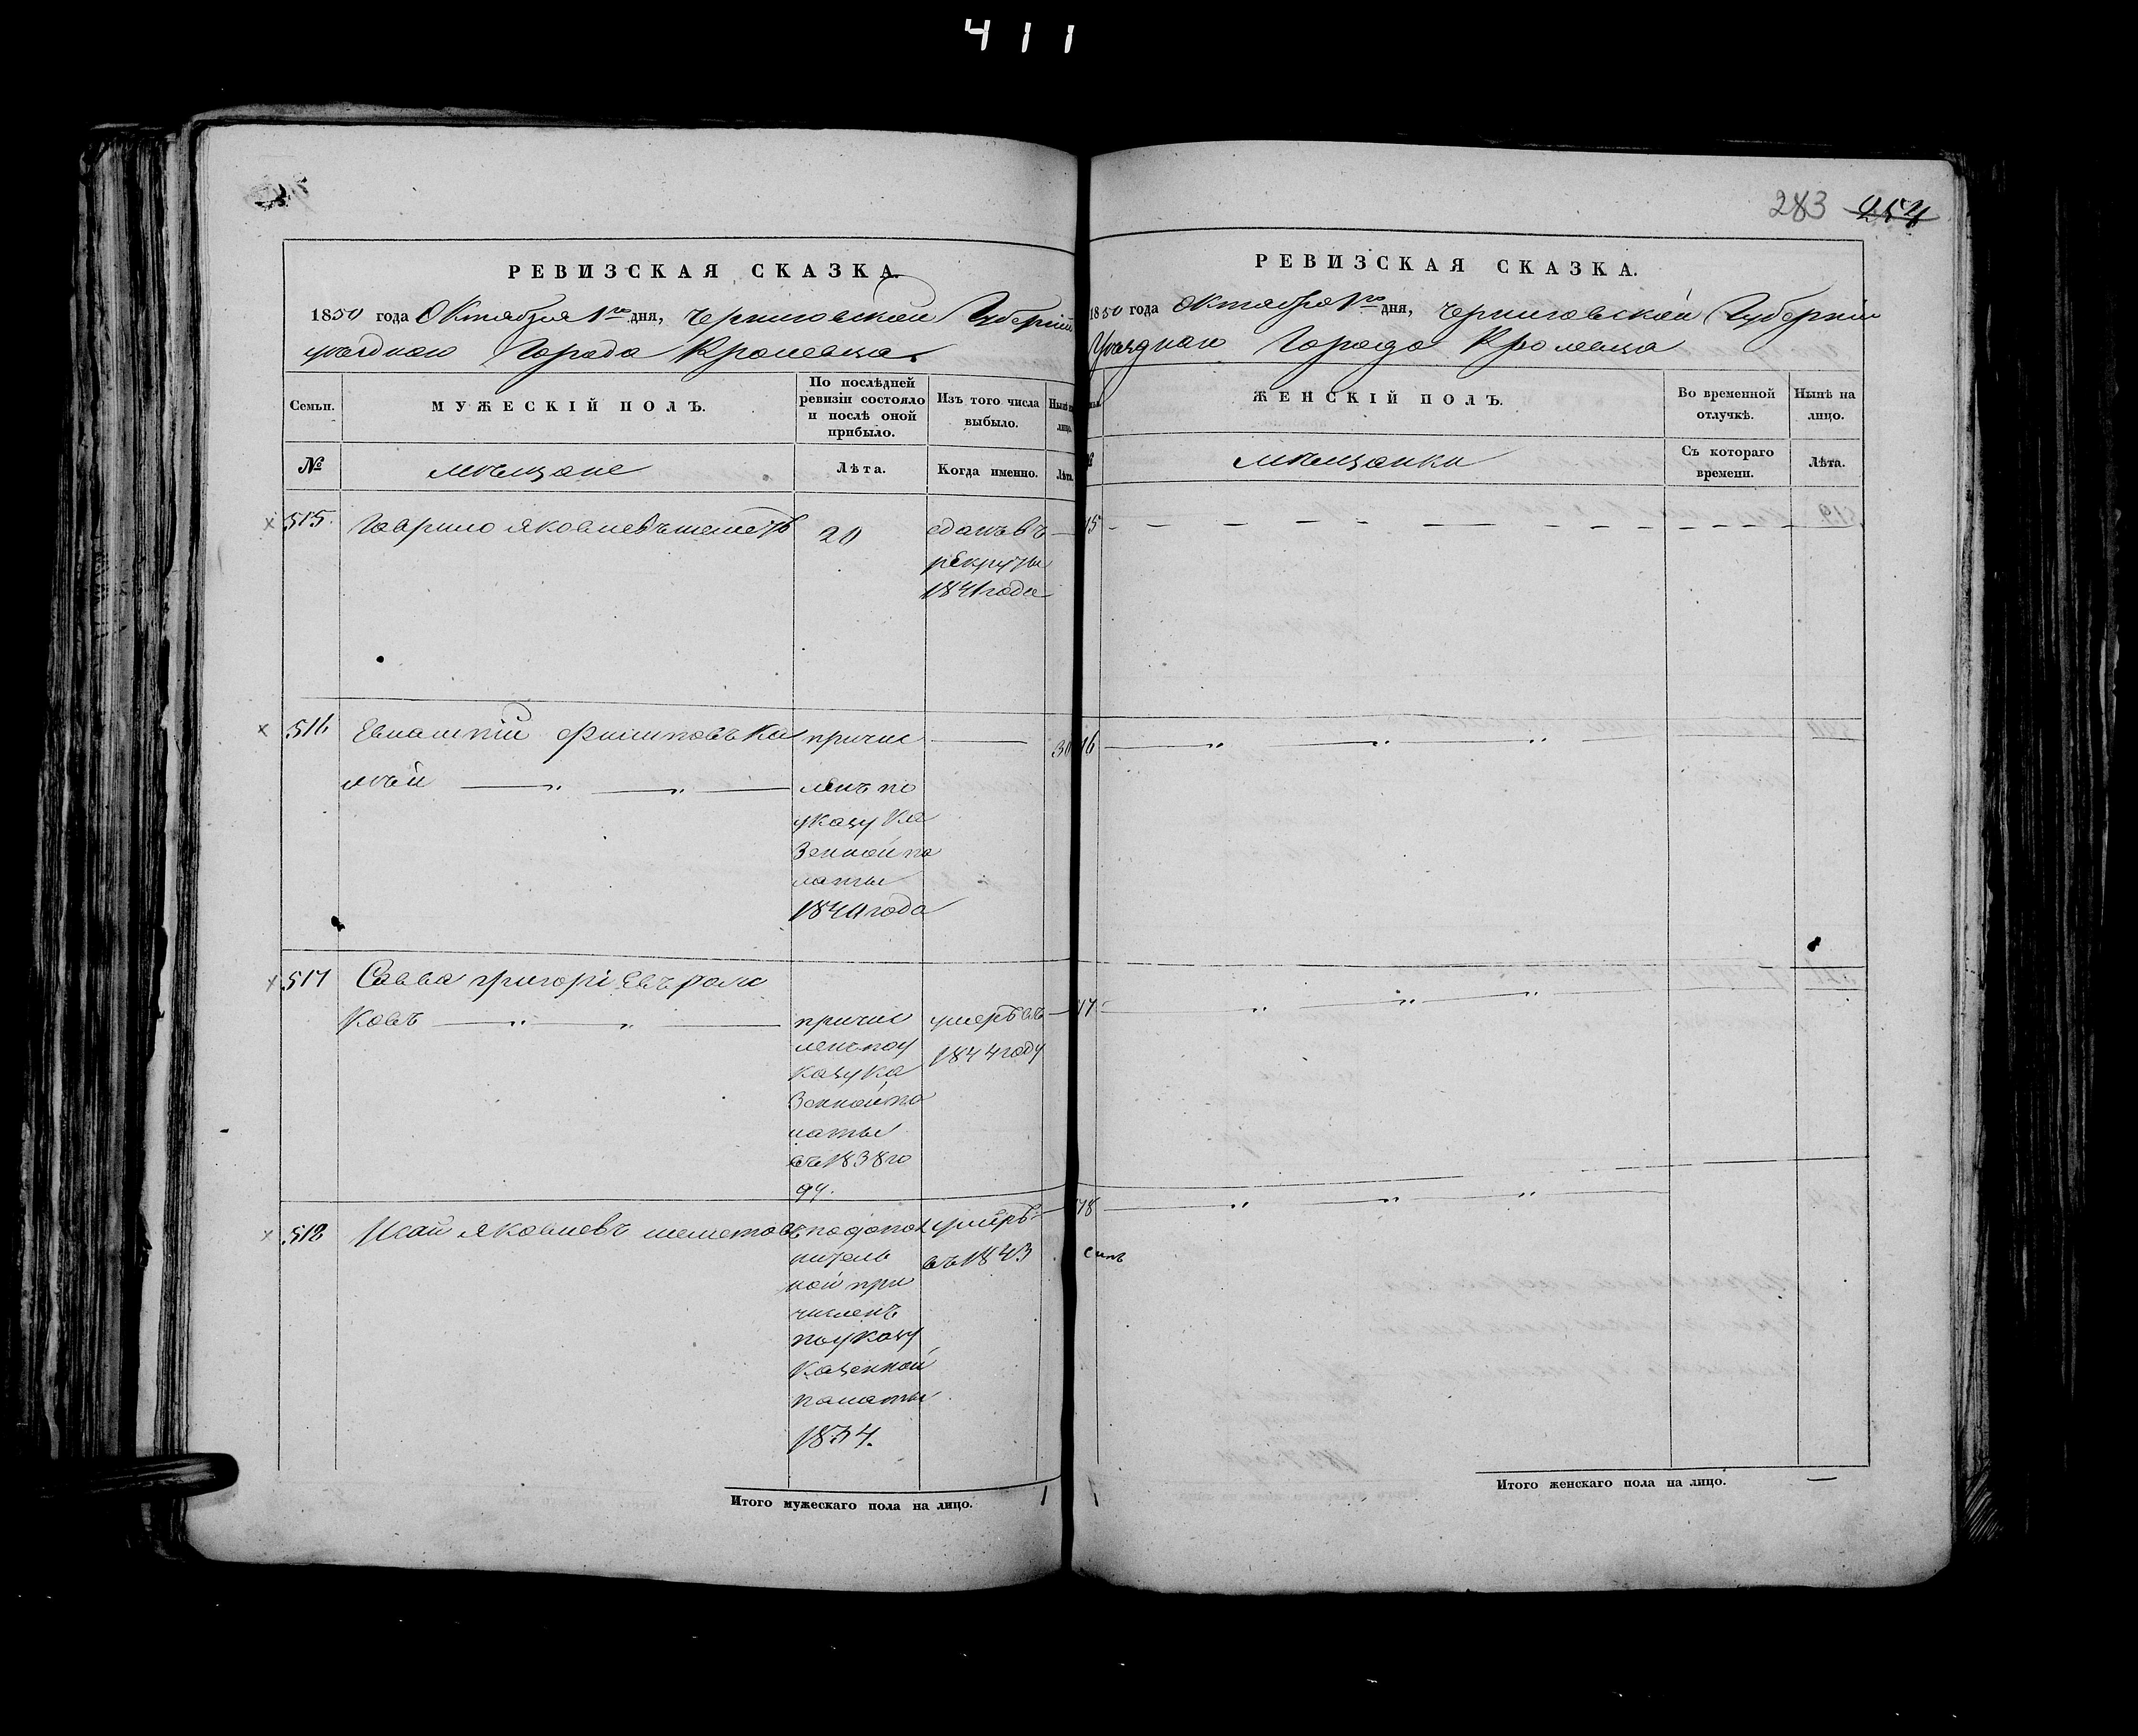 411
РЕВИЗСКАЯ СКАЗКА.
1850 года Октября 1го дня, Черниговской Губерніи
уѣзднаго Города Кролевца.
Семьи.
МУЖЕСКІЙ ПОЛЪ.
По послѣдней ревизіи состояло и послѣ оной прибыло.
Изъ того числа выбыло.
Нынѣ на лицо.
№
мѣщане
Лѣта.
Когда именно.
Лѣта.
515.
Гаврило Яковлевъ
20
сданъ въ
рекруты
1841 года
516
Филиповъ Ка
причис
30
мѣй
ленъ по
указу Ка
зенной па
латы
1840 года
517
Савва Григоріевъ
ковъ
причис
умеръ въ
ленъ поу
1844 году
казу ка
зенной па
латы
въ 1838 го
ду.
518
Исай Яковлевъ шеметовъ
по допол
умеръ
нитель
въ 1843
ной при
численъ
по указу
казенной
палаты
1834.
Итого мужескаго пола на лицо.
1
283 254
РЕВИЗСКАЯ СКАЗКА.
1850 года Октября 1го дня, Черниговской Губерніи
Уѣзднаго Города Кролевца
ЖЕНСКІЙ ПОЛЪ.
Во временной отлучкѣ.
Нынѣ на лицо.
мѣщанки
Съ котораго времени.
Лѣта.
15
16
17
18
Итого женскаго пола на лицо. —